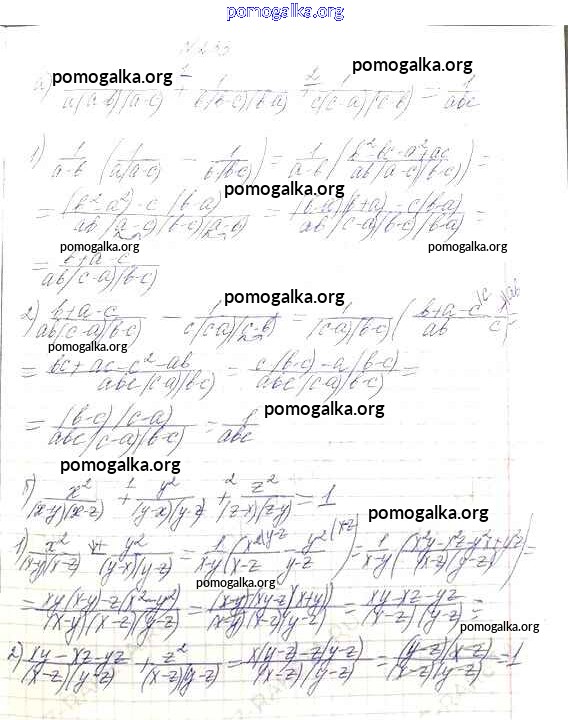 pomogalka.org
N 253
pomogalka.org pomogalka.org
а) 1/(a(a-b)(a-c)) + 1/(b(b-c)(b-a)) + 1/(c(c-a)(c-b)) = 1/abc
1) 1/(a-b) (1/(a(a-c)) - 1/(b(b-c))) = 1/(a-b) ((b²-bc-a²+ac)/(ab(a-c)(b-c))) =
pomogalka.org
= ((b²-a²)-c(b-a))/(ab(a-c)(b-c)(a-b)) = ((b-a)(b+a)-c(b-a))/(ab(c-a)(b-c)(b-a)) =
pomogalka.org pomogalka.org
= (b+a-c)/(ab(c-a)(b-c))
pomogalka.org
2) (b+a-c)/(ab(c-a)(b-c)) - 1/(c(c-a)(c-b)) = 1/((c-a)(b-c)) ((b+a-c)/ab
pomogalka.org
= (bc+ac-c²-ab)/(abc(c-a)(b-c)) = (c(b-c)-a(b-c))/(abc(c-a)(b-c)) =
pomogalka.org
= ((b-c)(c-a))/(abc(c-a)(b-c)) = 1/abc
pomogalka.org
б) x²/((x-y)(x-z)) + y²/((y-x)(y-z)) + z²/((z-x)(z-y)) = 1
pomogalka.org
1) x²/((x-y)(x-z)) + y²/((y-x)(y-z)) = 1/(x-y) (x²/(x-z) - y²/(y-z)) = 1/(x-y) ((x²y-x²z-y²x+y²z)/((x-z)(y-z))) =
pomogalka.org
= (xy(x-y)-z(x²-y²))/((x-y)(x-z)(y-z)) = ((x-y)(xy-z(x+y)))/((x-y)(x-z)(y-z)) = (xy-xz-yz)/((x-z)(y-z)) =
pomogalka.org
2) (xy-xz-yz)/((x-z)(y-z)) + z²/((x-z)(y-z)) = (x(y-z)-z(y-z))/((x-z)(y-z)) = ((y-z)(x-z))/((x-z)(y-z)) = 1
pomogalka.org